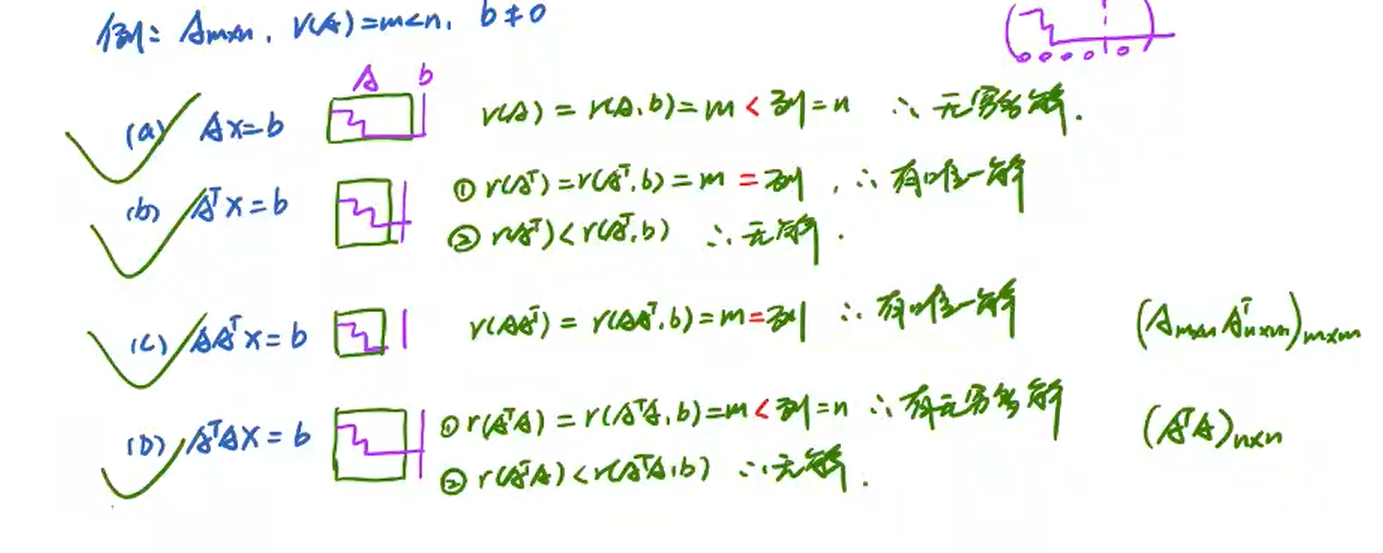 例: Aₘₓₙ, r(A)=m<n, b≠0
A b
(a) Ax=b r(A) = r(A,b)=m < 列=n ∴ 无穷多解.
(b) Aᵀx=b ① r(Aᵀ)=r(Aᵀ,b)=m = 列, ∴ 有唯一解
② r(Aᵀ)<r(Aᵀ,b) ∴ 无解.
(c) AAᵀx=b r(AAᵀ) = r(AAᵀ,b)=m=列 ∴ 有唯一解 (Aₘₓₙ Aᵀₙₓₘ)ₘₓₘ
(D) AᵀAx=b ① r(AᵀA) = r(AᵀA,b)=m<列=n ∴ 有无穷多解 (AᵀA)ₙₓₙ
② r(AᵀA)<r(AᵀA,b) ∴ 无解.